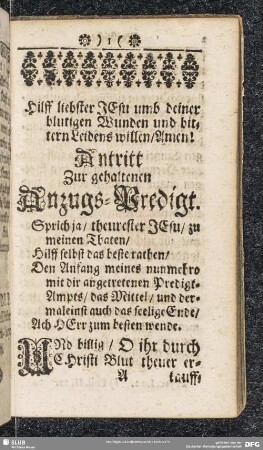 ) 1 (
Hilff liebster JEsu umb deiner
blutigen Wunden und bit-
tern Leidens willen/ Amen!
Antritt
Zur gehaltenen
Anzugs-Predigt.
Sprich ja/ theurester JEsu/ zu
meinen Thaten/
Hilff selbst das beste rathen/
Den Anfang meines nunmehro
mit dir angetretenen Predigt-
Ampts/ das Mittel/ und der-
maleinst auch das seelige Ende/
Ach HErr zum besten wende.
UNd billig/ O ihr durch
CHristi Blut theuer er-
A
kauff-
SLUB
DFG